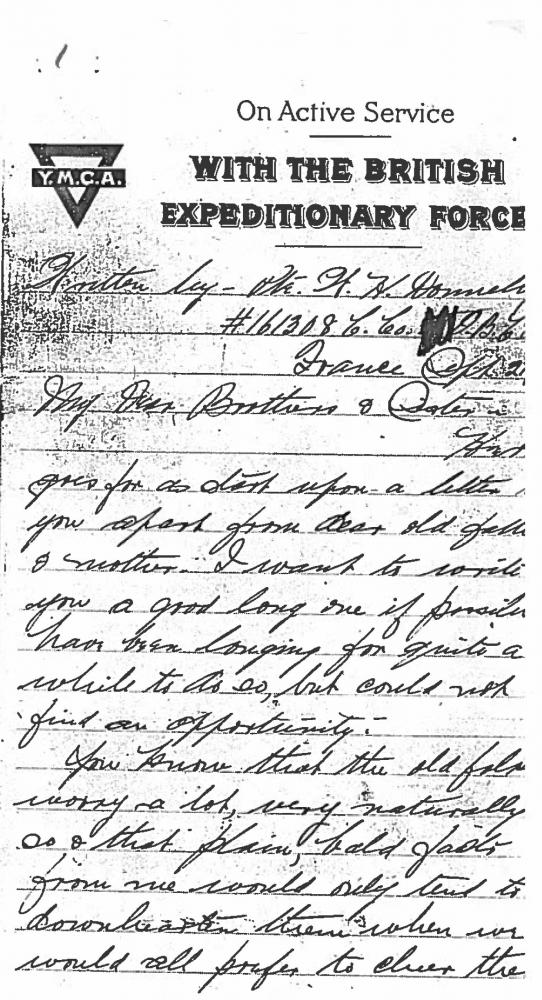 1
On Active Service
WITH THE BRITISH
EXPEDITIONARY FORCE
Y.M.C.A.
Written by - Pte. W. H. Honnel
#161308 C. Co.
France Sept. 2
My Dear Brothers & Sister -
Her
goes for a start upon a letter
you apart from dear old fath
& mother. I want to write
you a good long one if possib
have been longing for quite a
while to do so, but could not
find an opportunity.-
You know that the old folk
worry a lot, very naturally
so & that plain, bald facts
from me would only tend to
downhearten them when we
would all prefer to cheer the